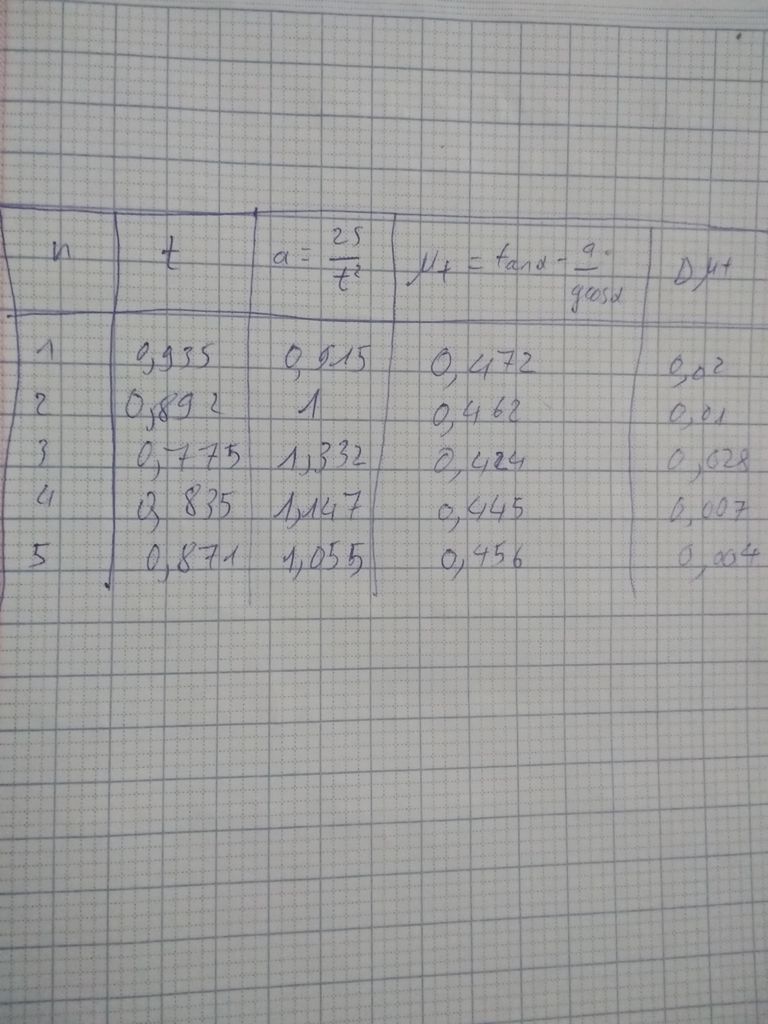 n t a = 2S/t² μt = tanα - a/gcosα Δμt
1 0,935 0,915 0,472 0,02
2 0,892 1 0,462 0,01
3 0,775 1,332 0,424 0,028
4 0,835 1,147 0,445 0,007
5 0,871 1,055 0,456 0,004